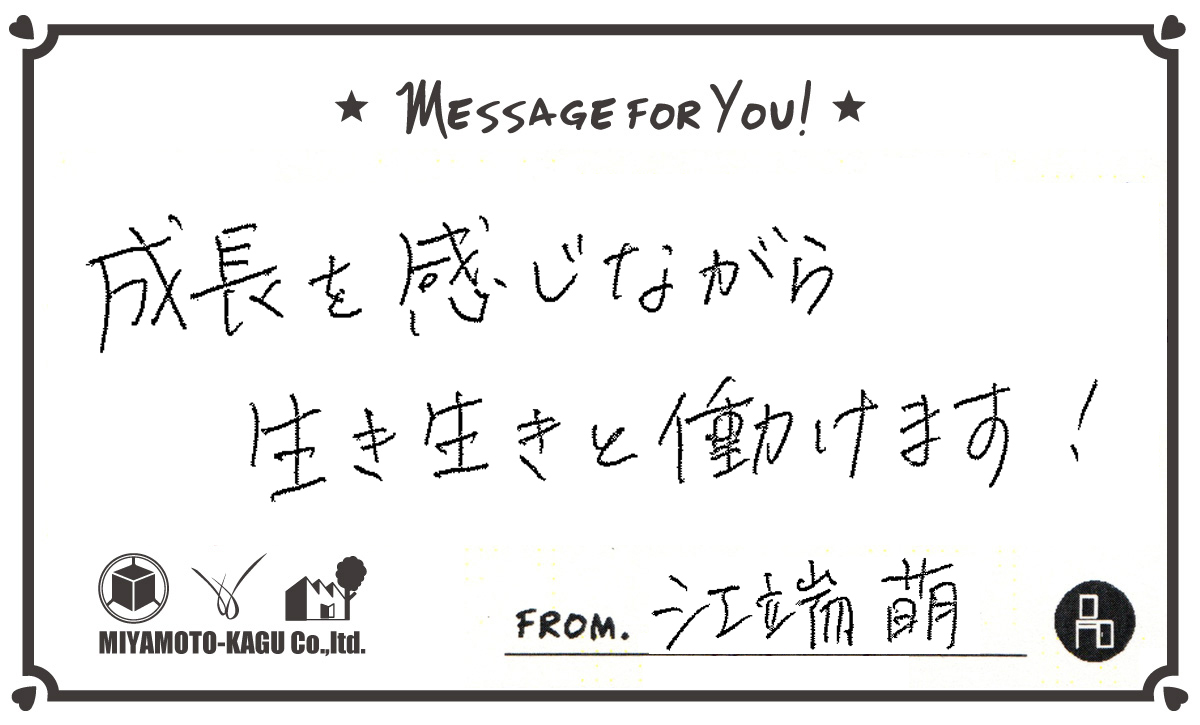 ★ MESSAGE FOR YOU! ★
成長を感じながら
生き生きと働けます!
MIYAMOTO-KAGU Co.,ltd.
FROM. 江端 萌